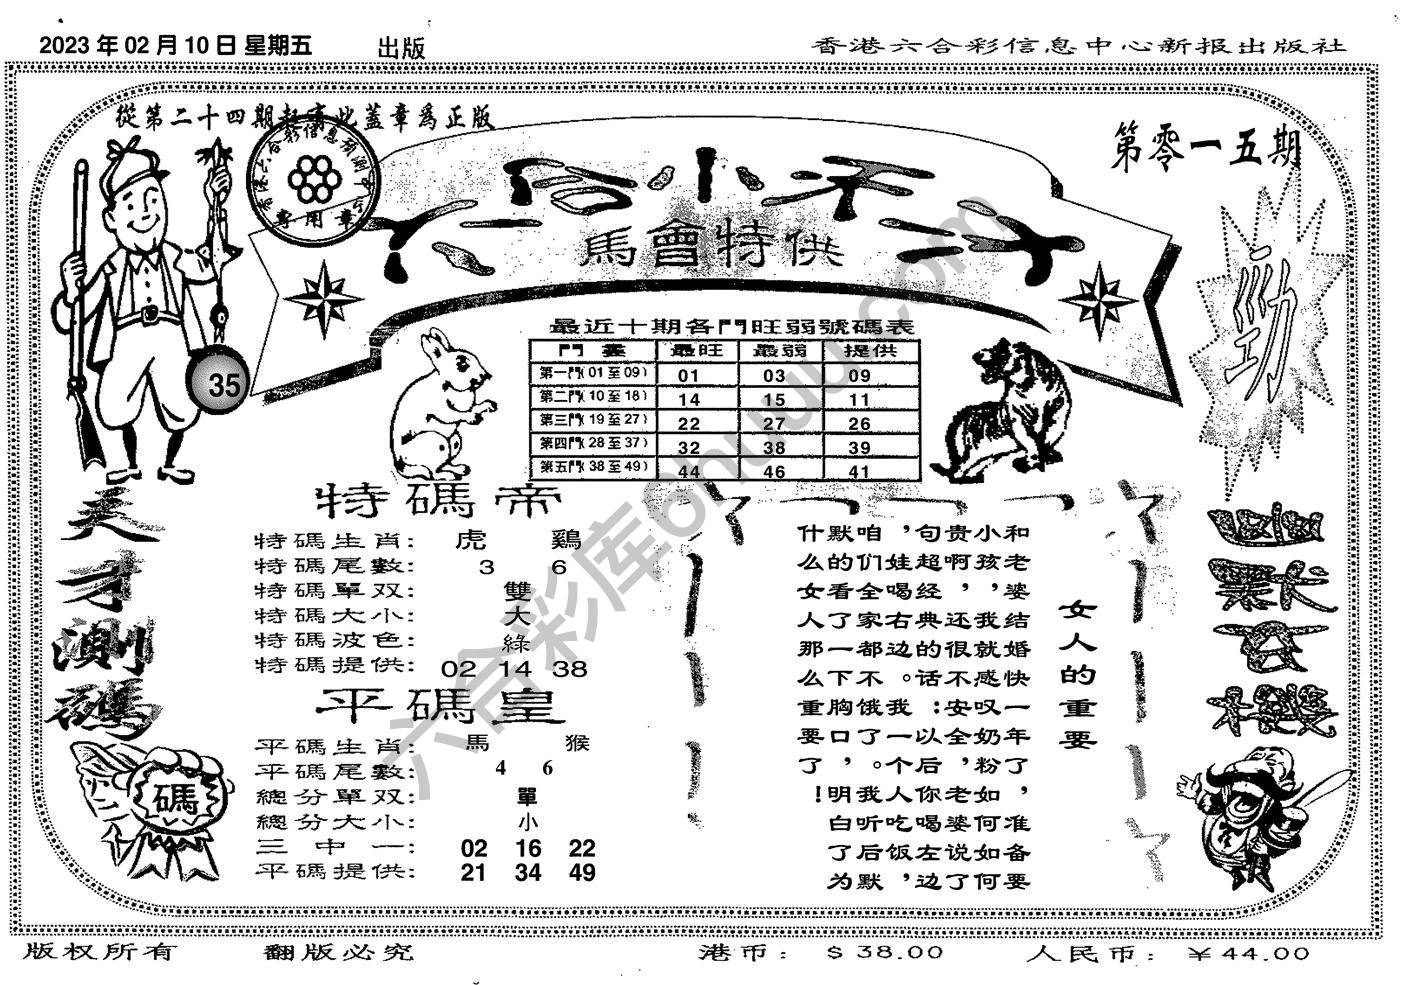 2023 年 02 月 10 日 星期五 出版
香港六合彩信息中心新报出版社
第零一五期
馬會特供
專用章
勁
35
最近十期各門旺弱號碼表
門 最旺 最弱 提供
第一門(01至09) 01 03 09
第二門(10至18) 14 15 11
第三門(19至27) 22 27 26
第四門(28至37) 32 38 39
第五門(38至49) 44 46 41
天才測碼
碼
特碼帝
特碼生肖: 虎 鷄
特碼尾數: 3 6
特碼單双: 雙
特碼大小: 大
特碼波色: 綠
特碼提供: 02 14 38
平碼皇
平碼生肖: 馬 猴
平碼尾數: 4 6
總分單双: 單
總分大小: 小
三中一: 02 16 22
平碼提供: 21 34 49
女人的重要
和老婆结婚快一年了，准备要
小孩，我就感叹奶粉如何如何
贵啊，还很不安全，老婆说了
句超经典的话：以后你喝左边
，娃喝右边。我一个人吃饭，
咱们全家都不饿了。我听后默
默的看了一下胸口，明白了为
什么女人那么重要！
六合彩库6huuu.com
版权所有 翻版必究 港币: $ 38.00 人民币: ￥44.00